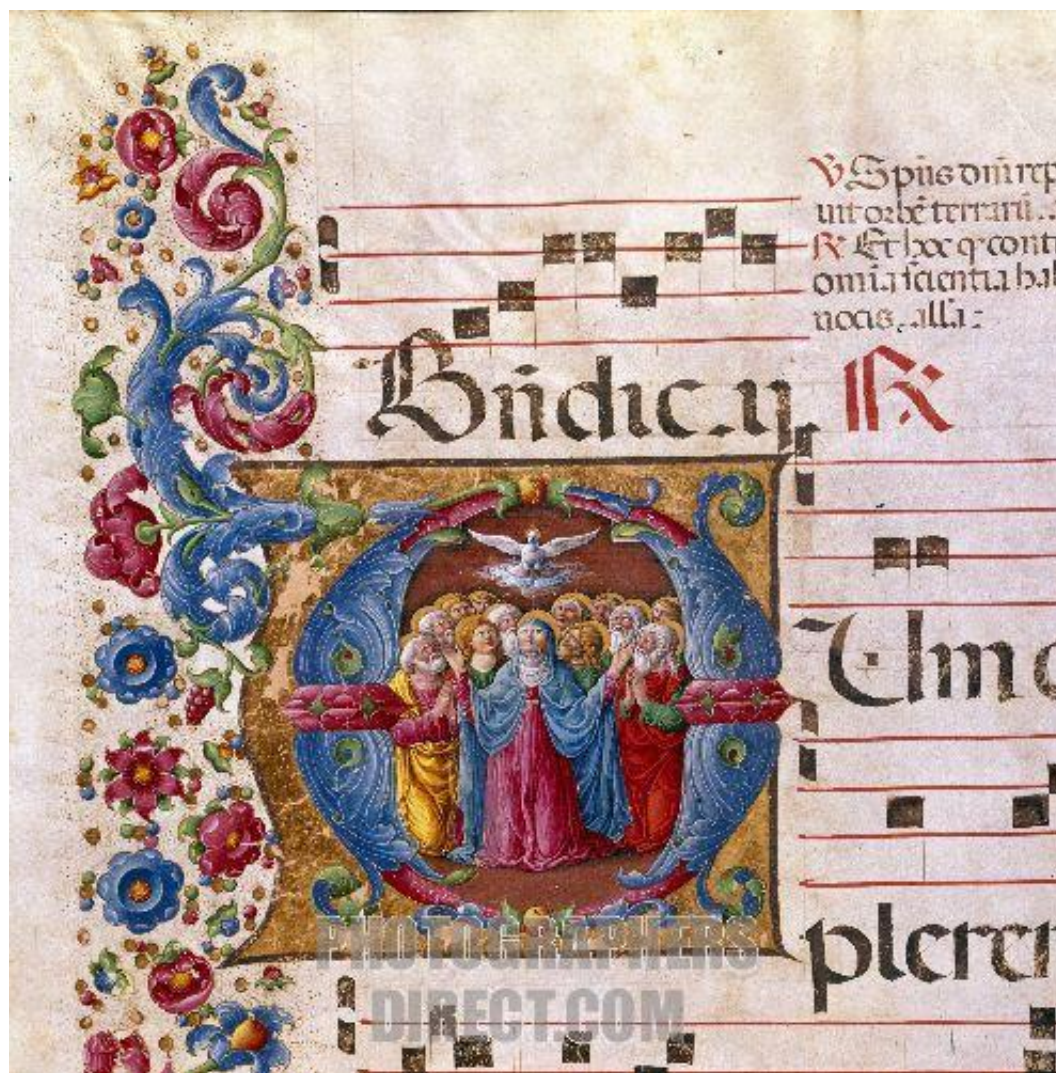 ℣ Spūs dn̄i rep
uit orbē terrarū.
℟ Et hoc q cont
omīa scientia hab
uocis. alla:
Bn̄dic.
℟
Um c
pleren
PHOTOGRAPHERS
DIRECT.COM